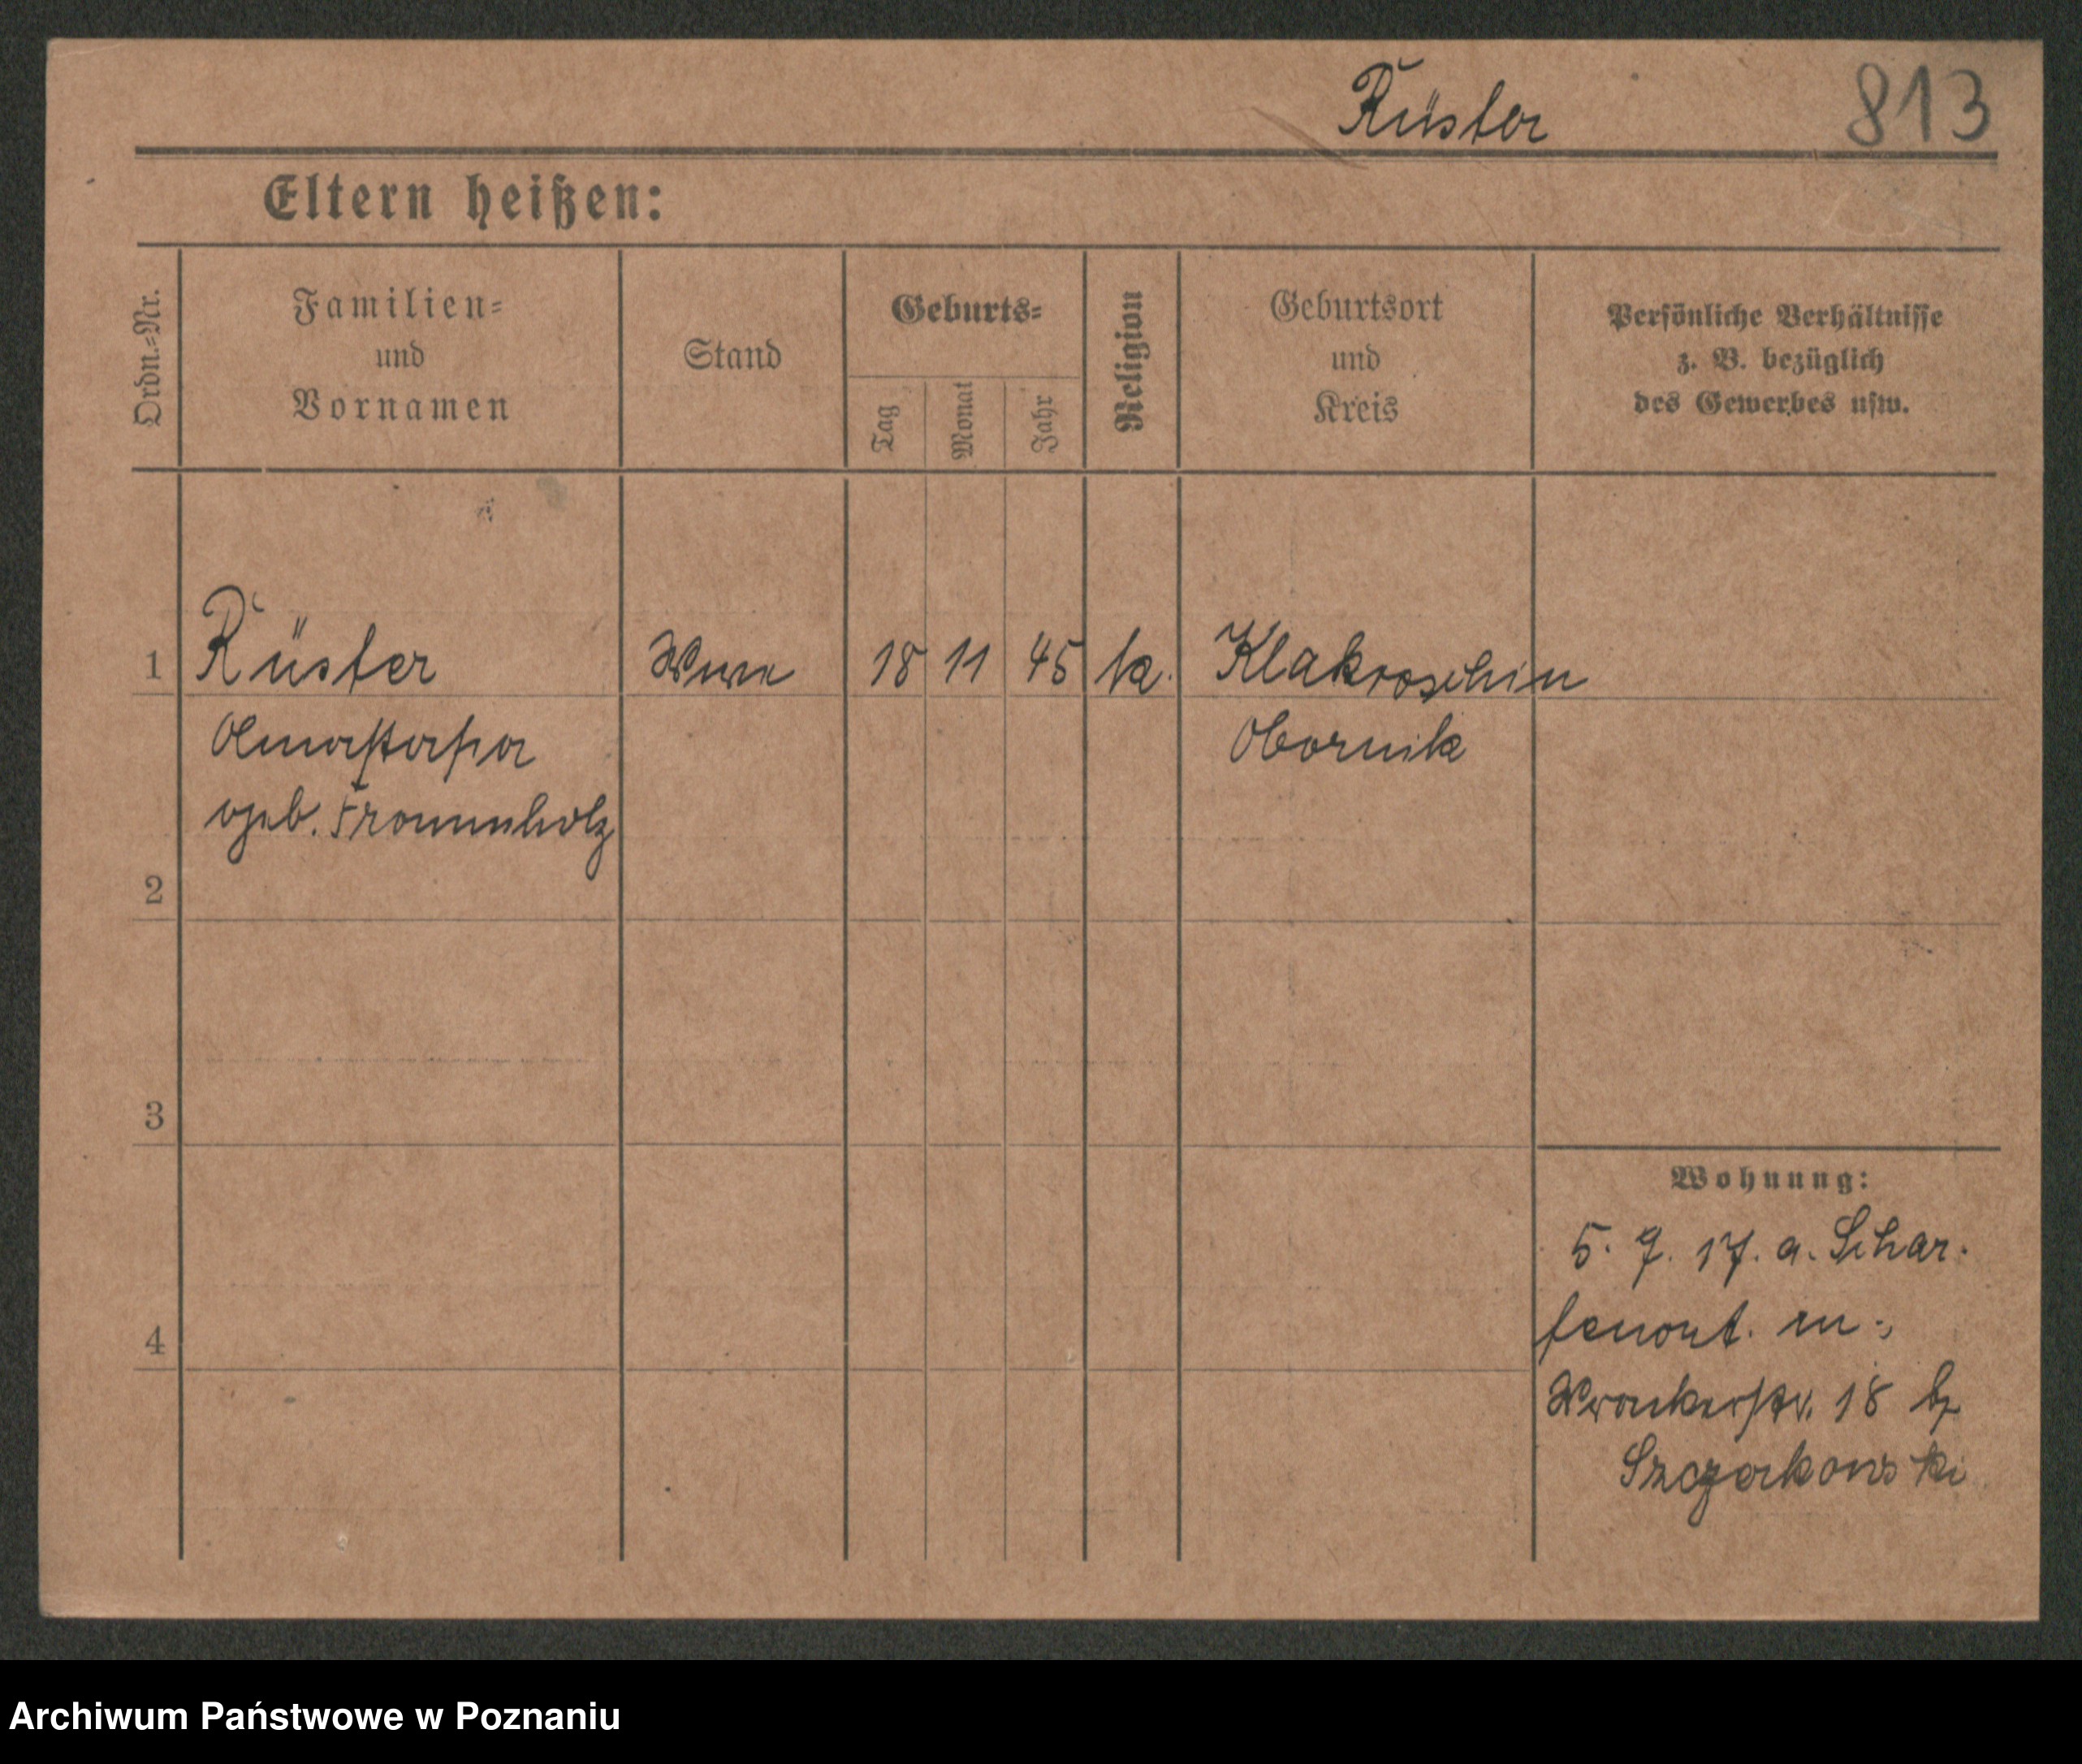 Rüster 813
Eltern heißen:
Ordn.=Nr.
Familien=
und
Vornamen
Stand
Geburts=
Tag
Monat
Jahr
Religion
Geburtsort
und
Kreis
Persönliche Verhältnisse
z. B. bezüglich
des Gewerbes usw.
1 Rüster Wwe 18 11 45 k. Klakroschin
Anastasia Obornik
geb. Frommholz
2
3
4
Wohnung:
5. 9. 17. a. Schar-
fenort.
Wronkerstr. 18 b
Szczerkowski
Archiwum Państwowe w Poznaniu